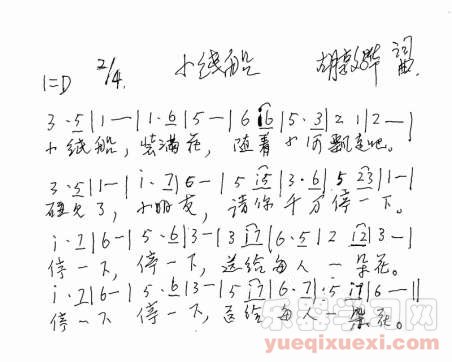 1=D 2/4. 小纸船 胡敦骅 词曲.
3·5|1-|1·6|5-|6 i6|5·3|2 1|2-|
小纸船, 装满花, 随着小河飘走吧。
3·5|1-|i·7|6-|5 i5|3·6|5 23|1-|
碰见了, 小朋友, 请你千万停一下。
i·7|6-|5·6|3-|3 i7|6·5|2 12|3-|
停一下, 停一下, 送给每人一朵花。
i·7|6-|5·6|3-|5 i7|6·7|·5 i7|6-||
停一下 停一下, 送给每人一朵花。
乐器学习网
yueqixuexi.com